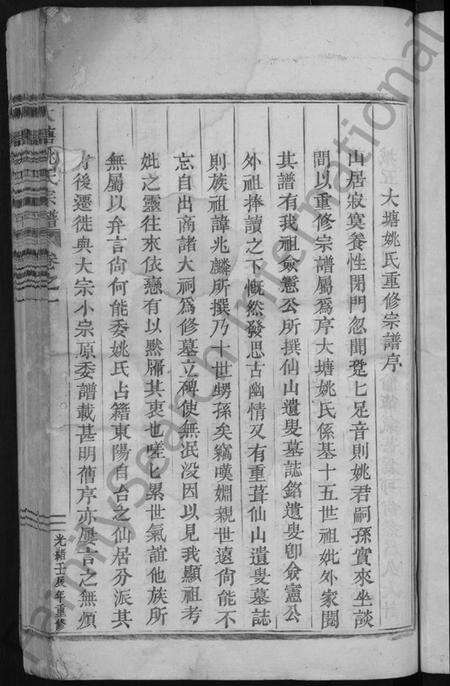 大塘姚氏重修宗譜序
山居寂寞養性閉門忽聞跫々足音則姚君嗣孫實來坐談
間以重修宗譜屬為序大塘姚氏係基十五世祖妣外家閱
其譜有我祖僉憲公所撰仙山遺叟墓誌銘遺叟卽僉憲公
外祖捧讀之下慨然發思古幽情又有重葺仙山遺叟墓誌
則族祖諱兆麟所撰乃十世甥孫矣竊嘆姻親世遠尙能不
忘自出商諸大祠為修墓立碑使無泯没因以見我顯祖考
妣之靈往來依戀有以黙牖其衷也嗟々累世氣誼他族所
無屬以弁言尙何能委姚氏占籍東陽自台之仙居分派其
後遷徙與大宗小宗原委譜載甚明舊序亦屢言之無煩
大塘姚氏宗譜 卷之一
光緒壬辰年重修
FamilySearch International